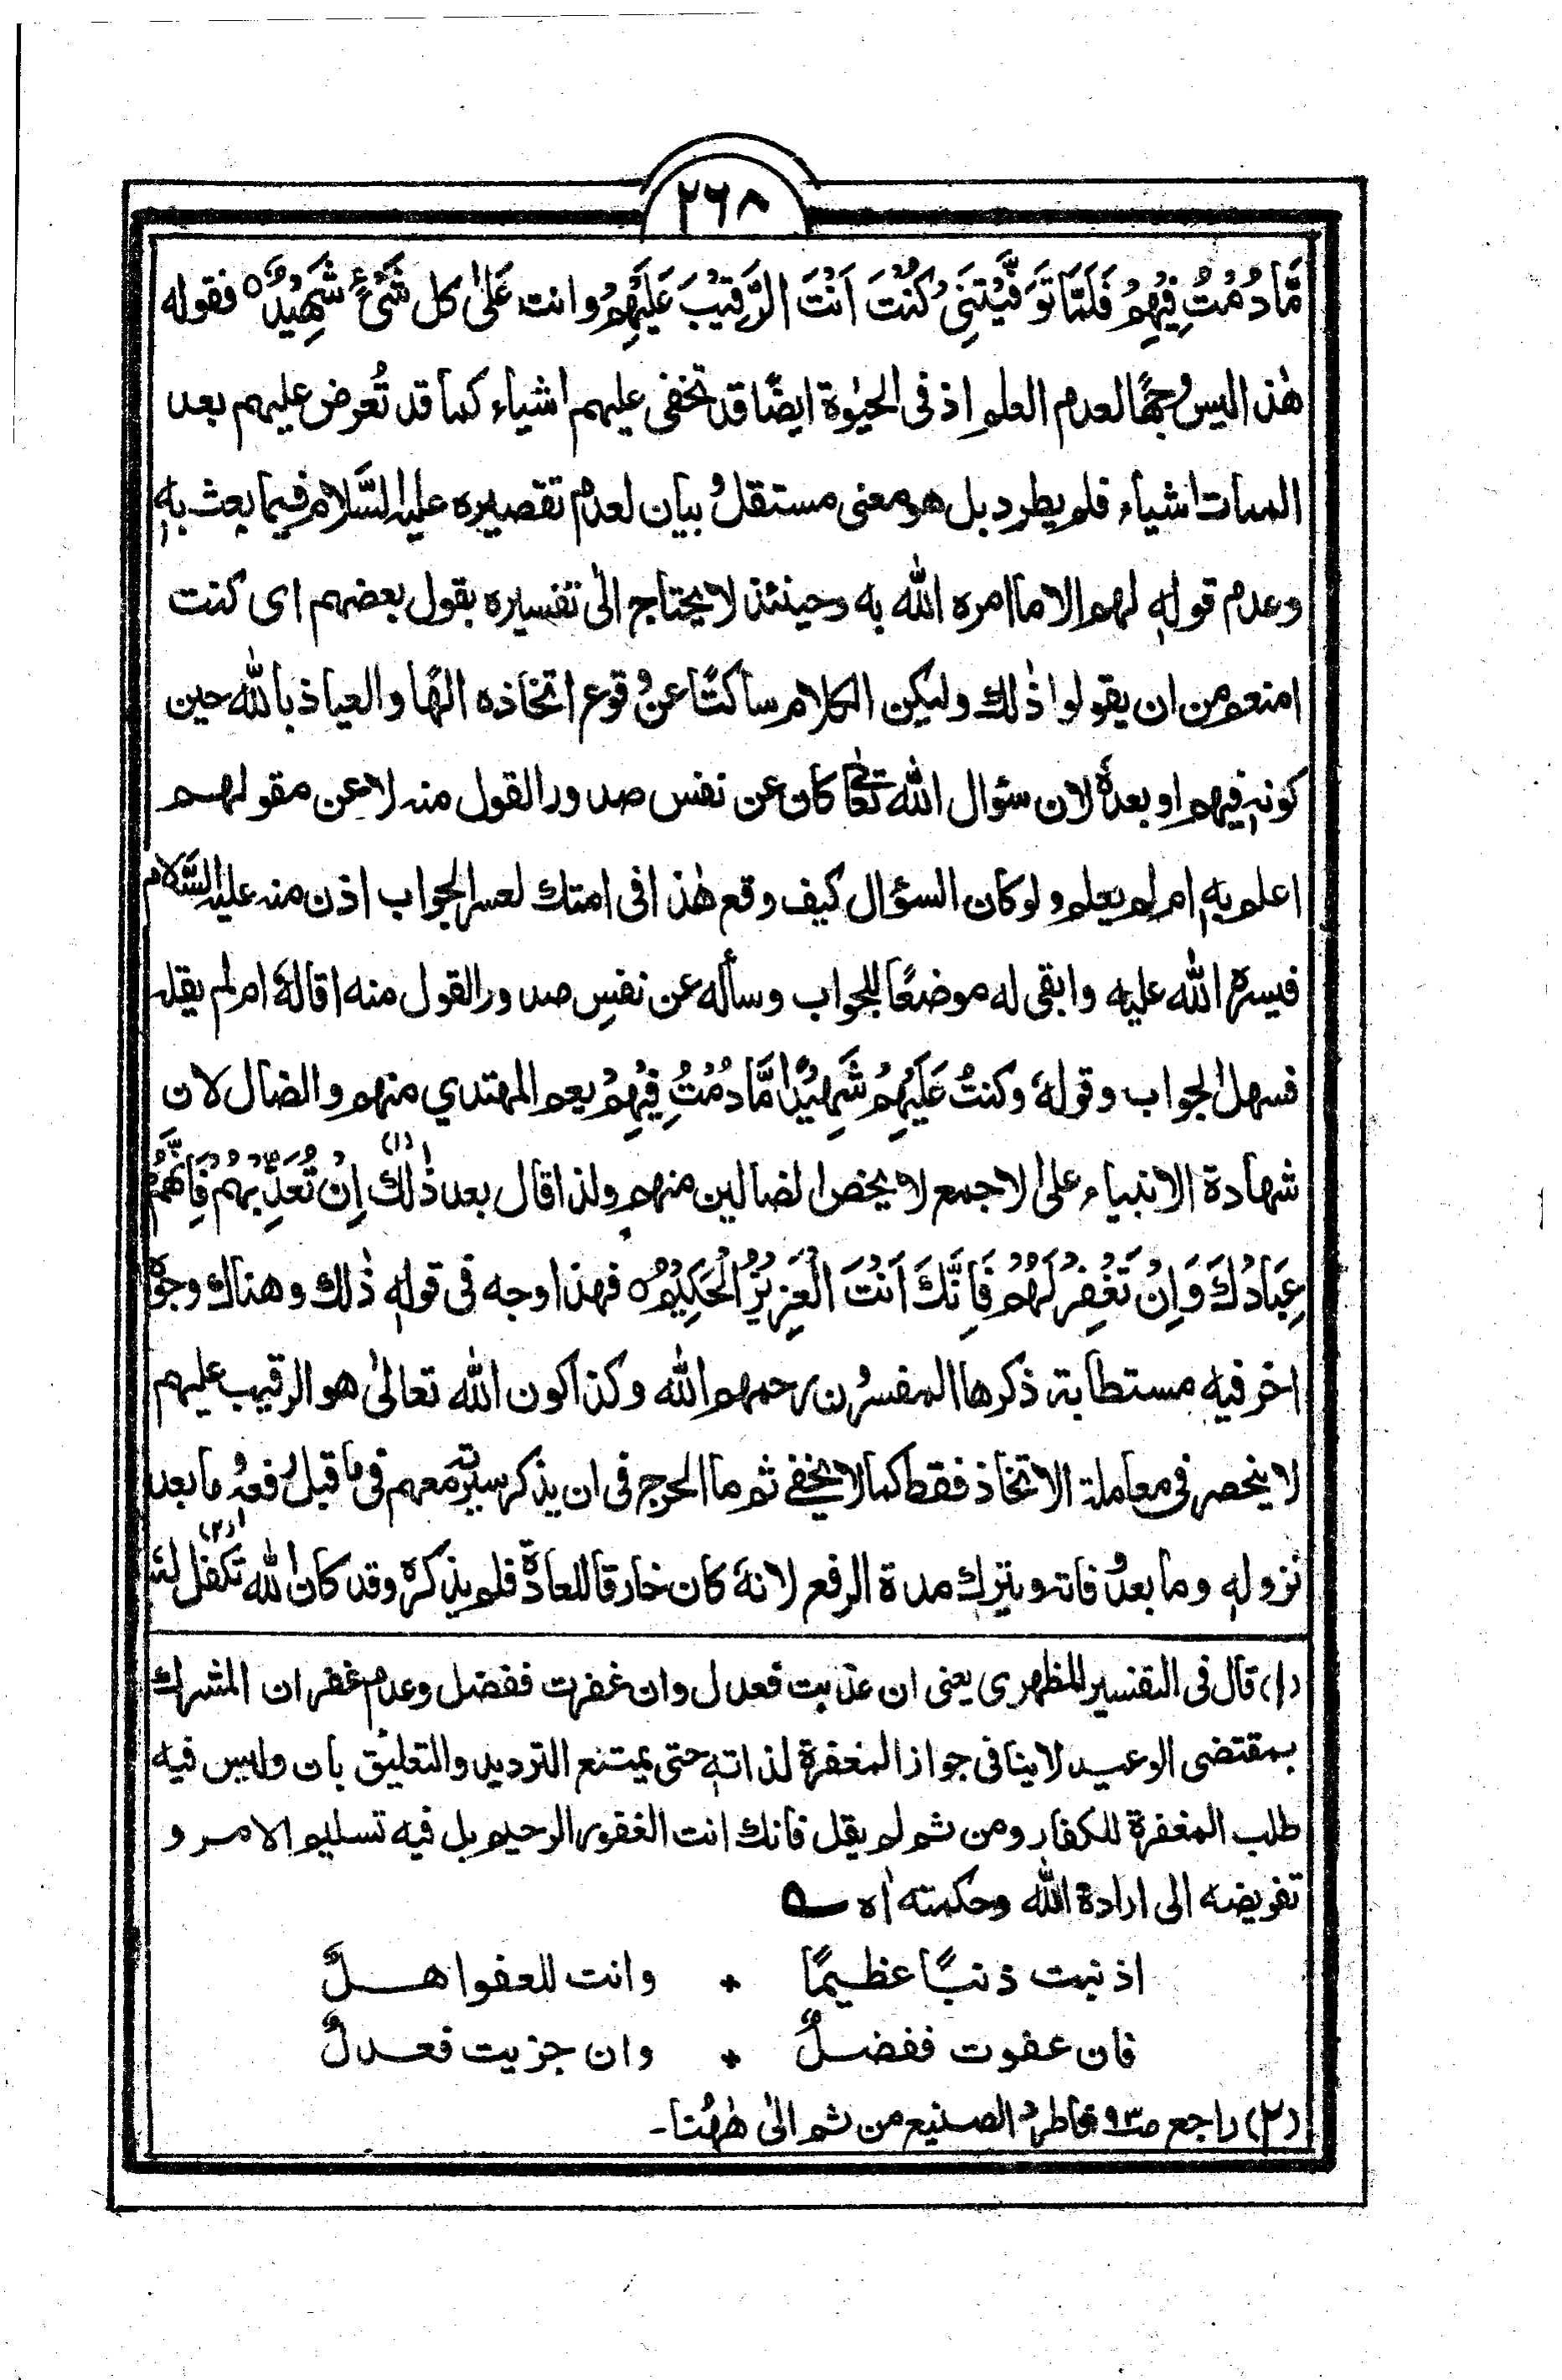 ٢٦٨
مَّا دُمْتُ فِيْهِمْ فَلَمَّا تَوَفَّيْتَنِيْ كُنْتَ اَنْتَ الرَّقِيْبَ عَلَيْهِمْ وانت عَلٰى كل شَيْءٍ شَهِيْدٌ ٥ فقوله
هٰذا ليس وجهًا لعدم العلم اذ فى الحيٰوة ايضًا قد تخفى عليهم اشياء كما قد تُعرض عليهم بعد
الممات اشياء فلم يطرد بل هو معنى مستقل و بيان لعدم تقصيره عليه السَّلام فيما بعث به
وعدم قوله لهم الا ما امره الله به وحينئذ لا يحتاج الىٰ تفسيره بقول بعضهم اى كنت
امنعهم من ان يقولوا ذٰلك وليكن الكلام ساكتًا عن وقوع اتخاذه الٰهًا والعياذ بالله حين
كونه فيهم او بعدهٗ لان سؤال الله تعالٰى كان عن نفس صدور القول منه لا عن مقولهم
اعلم به ام لم يعلم ولو كان السؤال كيف وقع هٰذا فى امتك لعسر الجواب اذن منه عليه السَّلام
فيسره الله عليه وابقى له موضعًا للجواب وسأله عن نفسِ صدور القول منه اقالهٗ ام لم يقله
فسهل الجواب وقولهٗ وكنتُ عَلَيْهِمْ شَهِيْدًا مَّا دُمْتُ فِيْهِمْ يعم المهتدي منهم والضال لان
شهادة الانبياء على الاجمع لا يخص الضالين منهم ولذا قال بعد ذٰلك (١) اِنْ تُعَذِّبْهُمْ فَاِنَّهُمْ
عِبَادُكَ وَاِنْ تَغْفِرْ لَهُمْ فَاِنَّكَ اَنْتَ الْعَزِيْزُ الْحَكِيْمُ ٥ فهذا وجه فى قوله ذٰلك وهناك وجوه
اخر فيه مستطابة ذكرها المفسرون رحمهم الله وكذا كون الله تعالىٰ هو الرقيب عليهم
لا ينحصر فى معاملة الاتخاذ فقط كما لا يخفے ثم ما الحرج فى ان يذكر سيرته معهم فى ما قبل رفعه وما بعد
نزوله وما بعد وفاته ويترك مدة الرفع لانهٗ كان خارقا للعادة فلم يذكره وقد كان الله تكفل (٢)
(١) قال فى التفسير المظهرى يعنى ان عذبت فعدل وان غفرت ففضل وعدم غفران المشرك
بمقتضى الوعيد لا ينافى جواز المغفرة لذاته حتى يمتنع الترديد والتعليق بان وليس فيه
طلب المغفرة للكفار ومن ثم لم يقل فانك انت الغفور الرحيم بل فيه تسليم الامر و
تفويضه الى ارادة الله وحكمته اه
اذنبت ذنبًا عظيمًا * وانت للعفو اهلٌ
فان عفوت ففضلٌ * وان جزيت فعدلٌ
(٢) راجع صـ٩٣ الصنيع من ثم الىٰ هٰهُنا۔